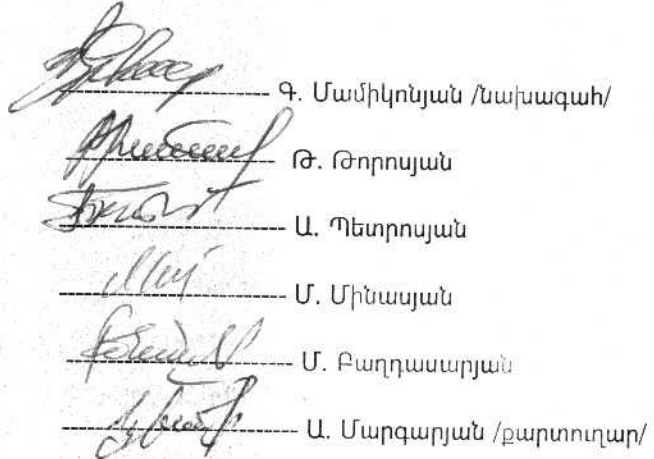 Գ. Մամիկոնյան /նախագահ/
Թ. Թորոսյան
Ա. Պետրոսյան
Մ. Մինասյան
Մ. Բաղդասարյան
Ա. Մարգարյան /քարտուղար/